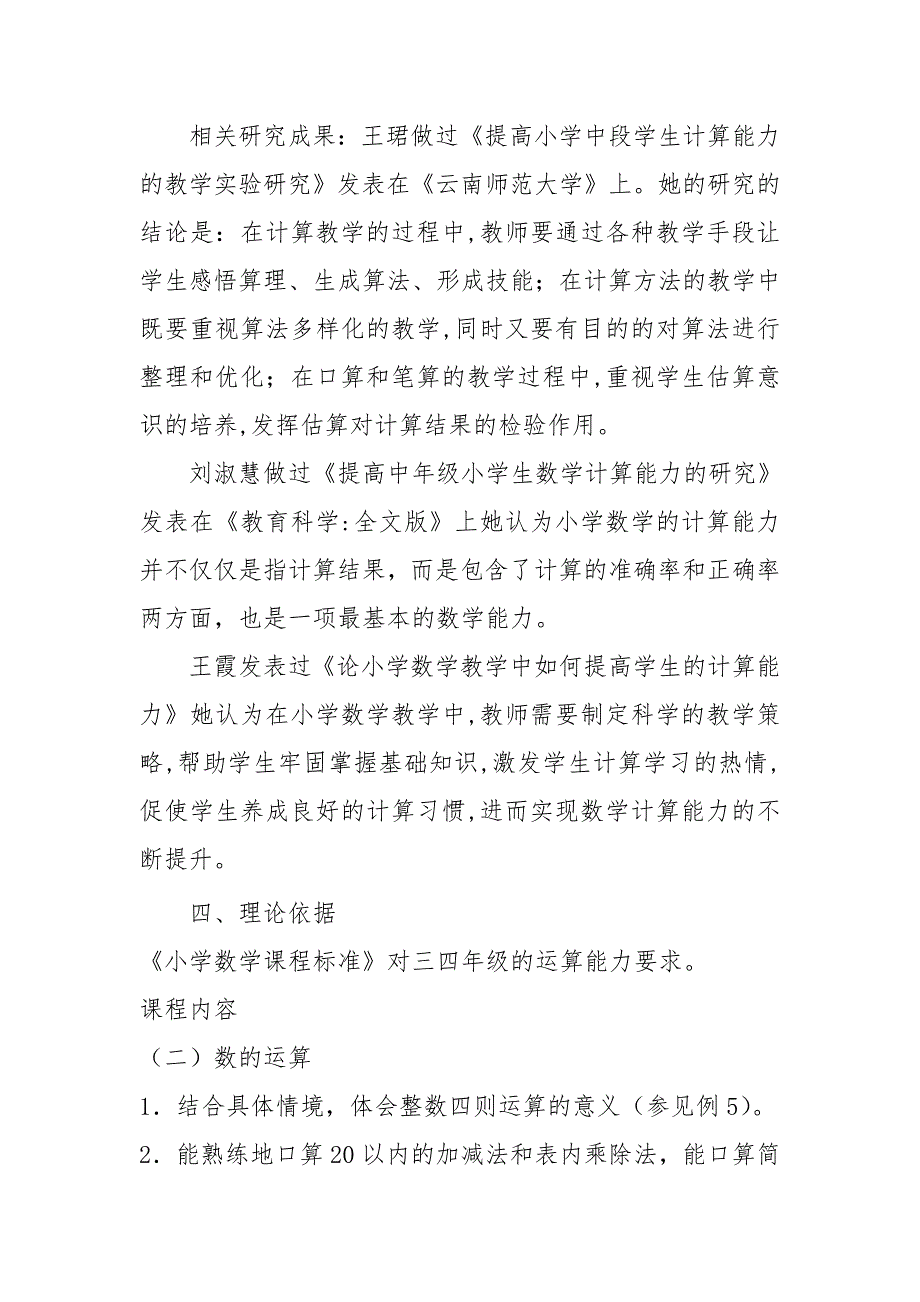 相关研究成果：王珺做过《提高小学中段学生计算能力
的教学实验研究》发表在《云南师范大学》上。她的研究的
结论是：在计算教学的过程中,教师要通过各种教学手段让
学生感悟算理、生成算法、形成技能；在计算方法的教学中
既要重视算法多样化的教学,同时又要有目的的对算法进行
整理和优化；在口算和笔算的教学过程中,重视学生估算意
识的培养,发挥估算对计算结果的检验作用。
刘淑慧做过《提高中年级小学生数学计算能力的研究》
发表在《教育科学:全文版》上她认为小学数学的计算能力
并不仅仅是指计算结果，而是包含了计算的准确率和正确率
两方面，也是一项最基本的数学能力。
王霞发表过《论小学数学教学中如何提高学生的计算能
力》她认为在小学数学教学中,教师需要制定科学的教学策
略,帮助学生牢固掌握基础知识,激发学生计算学习的热情,
促使学生养成良好的计算习惯,进而实现数学计算能力的不
断提升。
四、理论依据
《小学数学课程标准》对三四年级的运算能力要求。
课程内容
（二）数的运算
1．结合具体情境，体会整数四则运算的意义（参见例 5）。
2．能熟练地口算 20 以内的加减法和表内乘除法，能口算简